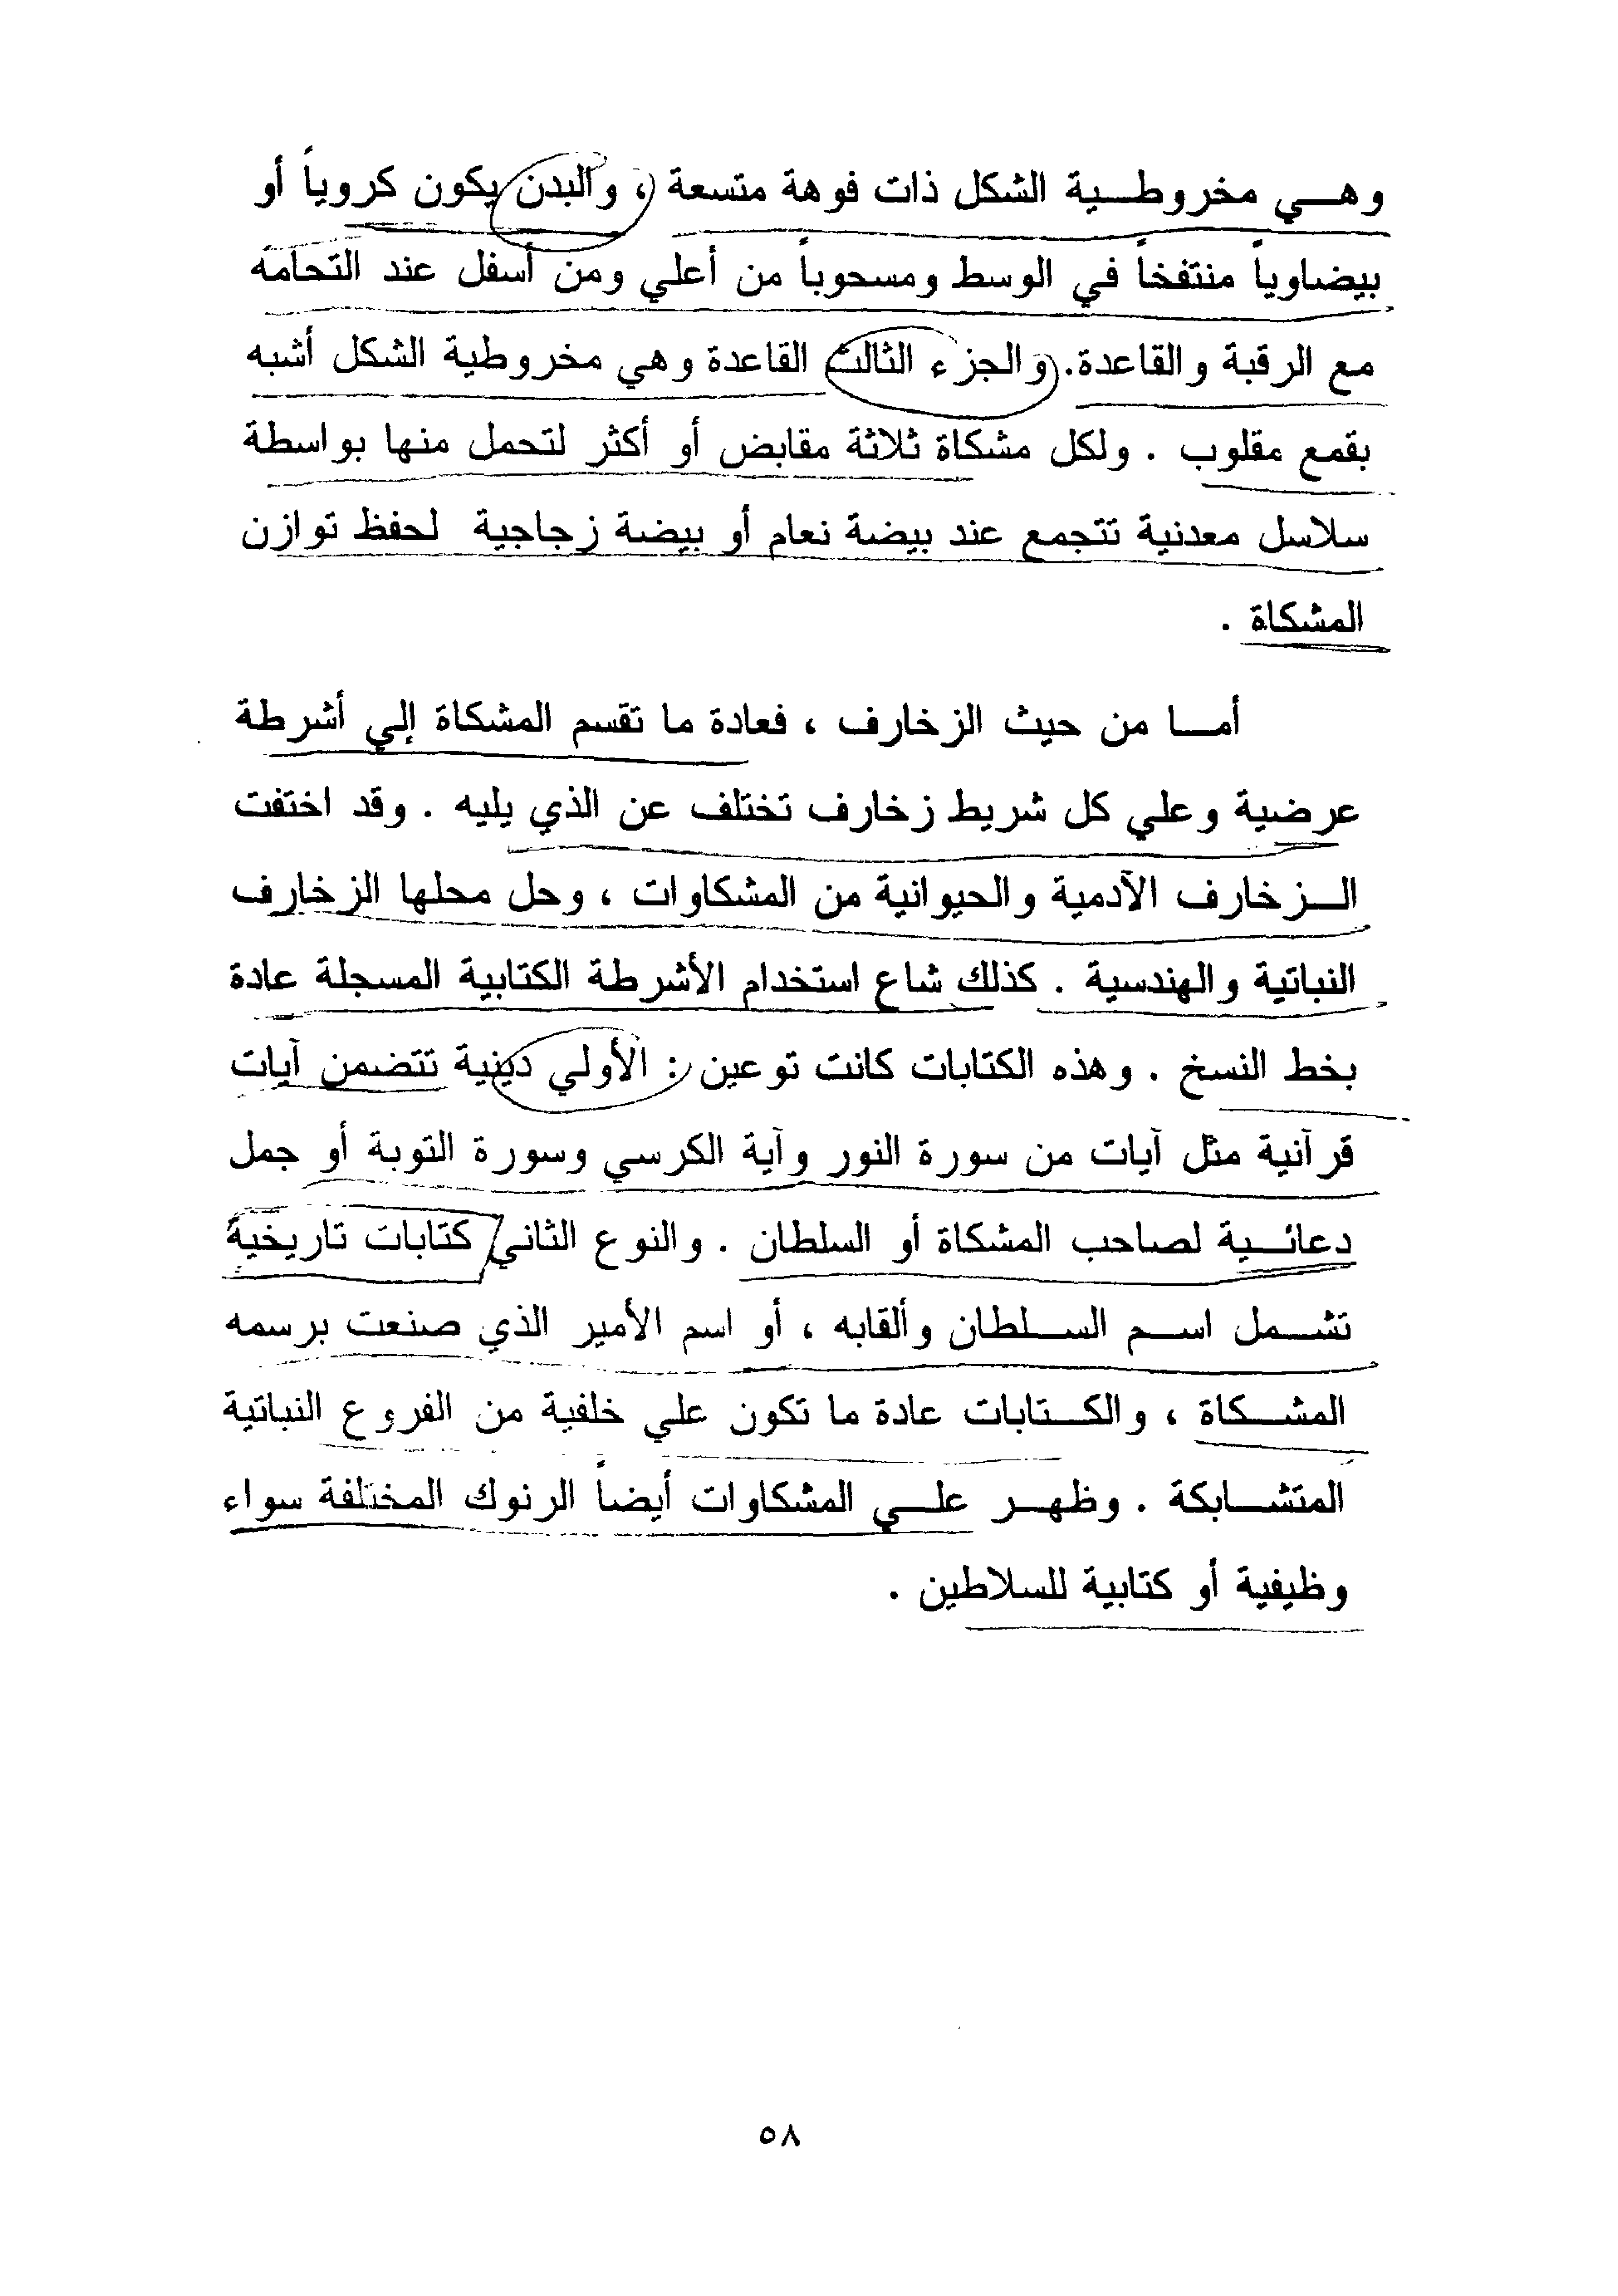 وهي مخروطية الشكل ذات فوهة متسعة ، والبدن يكون كروياً أو
بيضاوياً منتفخاً في الوسط ومسحوباً من أعلي ومن أسفل عند التحامه
مع الرقبة والقاعدة. والجزء الثالث القاعدة وهي مخروطية الشكل أشبه
بقمع مقلوب . ولكل مشكاة ثلاثة مقابض أو أكثر لتحمل منها بواسطة
سلاسل معدنية تتجمع عند بيضة نعام أو بيضة زجاجية لحفظ توازن
المشكاة .
أما من حيث الزخارف ، فعادة ما تقسم المشكاة إلي أشرطة
عرضية وعلي كل شريط زخارف تختلف عن الذي يليه . وقد اختفت
الزخارف الآدمية والحيوانية من المشكاوات ، وحل محلها الزخارف
النباتية والهندسية . كذلك شاع استخدام الأشرطة الكتابية المسجلة عادة
بخط النسخ . وهذه الكتابات كانت نوعين : الأولي دينية تتضمن آيات
قرآنية مثل آيات من سورة النور وآية الكرسي وسورة التوبة أو جمل
دعائية لصاحب المشكاة أو السلطان . والنوع الثاني كتابات تاريخية
تشمل اسم السلطان وألقابه ، أو اسم الأمير الذي صنعت برسمه
المشكاة ، والكتابات عادة ما تكون علي خلفية من الفروع النباتية
المتشابكة . وظهر علي المشكاوات أيضاً الرنوك المختلفة سواء
وظيفية أو كتابية للسلاطين .
٥٨